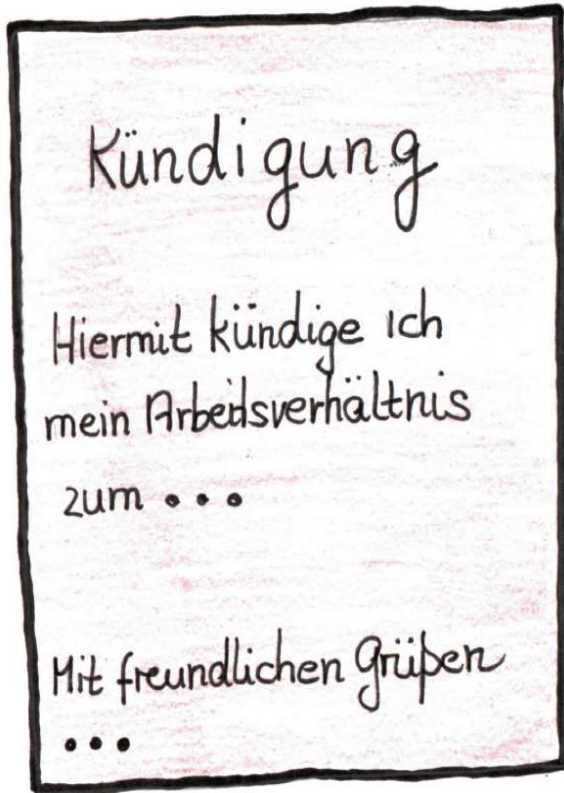 Kündigung
Hiermit kündige ich
mein Arbeitsverhältnis
zum ...
Mit freundlichen Grüßen
...